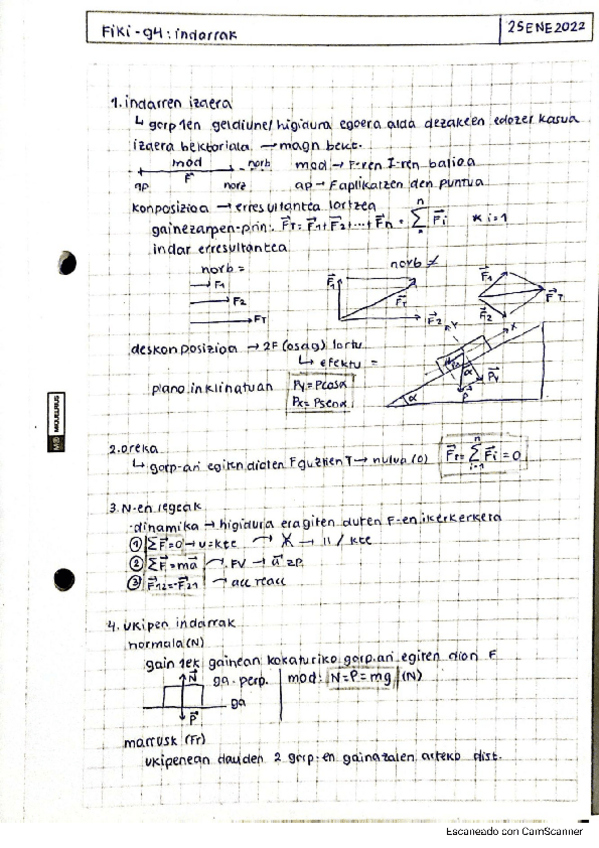 Fiki-g4: indarrak
25ENE2022
1. indarren izaera
↳ gorp 1en geldiune/higidura egoera alda dezakeen edozer kausa
izaera bektoriala → magn bekt.
mod norb mod → F-ren I-ren balioa
F
ap nor2 ap → F aplikatzen den puntua
konposizioa → erresultantea lortzea
gainezarpen-prin: F⃗T = F⃗1 + F⃗2 + ... + F⃗n = Σ F⃗i * i=1
indar erresultantea
norb = norb ≠
F1
F2
FT
F⃗1 F⃗T F⃗2
F⃗1 F⃗T F⃗2
deskonposizioa → 2F (osag) lortu
↳ efektu =
plano inklinatuan Py = Pcosα
Px = Psenα
Y X α Py P α
2. oreka
↳ gorp-ari egiten dioten F guztien T → nulua (0) F⃗T = Σ F⃗i = 0
n i=1
3. N-en legeak
-dinamika → higidura eragiten duten F-en ikerkerkera
① ΣF⃗=0 → v=kte → → // kte
② ΣF⃗=ma⃗ → FV → a⃗ zp.
③ F⃗12=-F⃗21 → acc reacc
4. ukipen indarrak
normala (N)
gain 1ek gainean kokaturiko gorp.ari egiten dion F
N⃗ ga. perp. mod: N=P=mg (N)
ga
P⃗
marrusk (Fr)
ukipenean dauden 2 gorp.en gainazalen arteko dist.
MIQUELRIUS
Escaneado con CamScanner